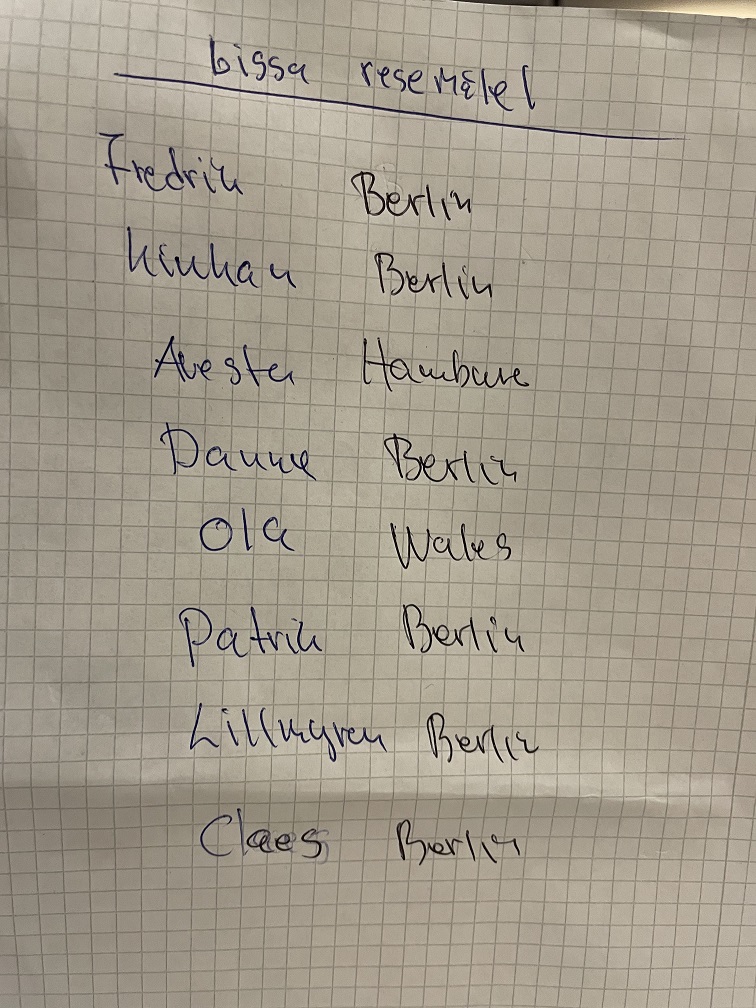 Gissa resemålet
Fredrik Berlin
Kinkan Berlin
Avesta Hamburg
Danne Berlin
Ola Wales
Patrik Berlin
Lillmgren Berlin
Claes Berlin